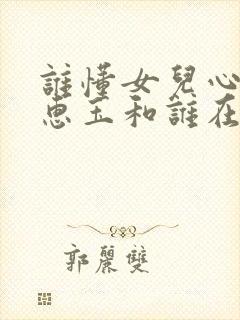 誰懂女兒心
惠玉和誰在
郭麗雙